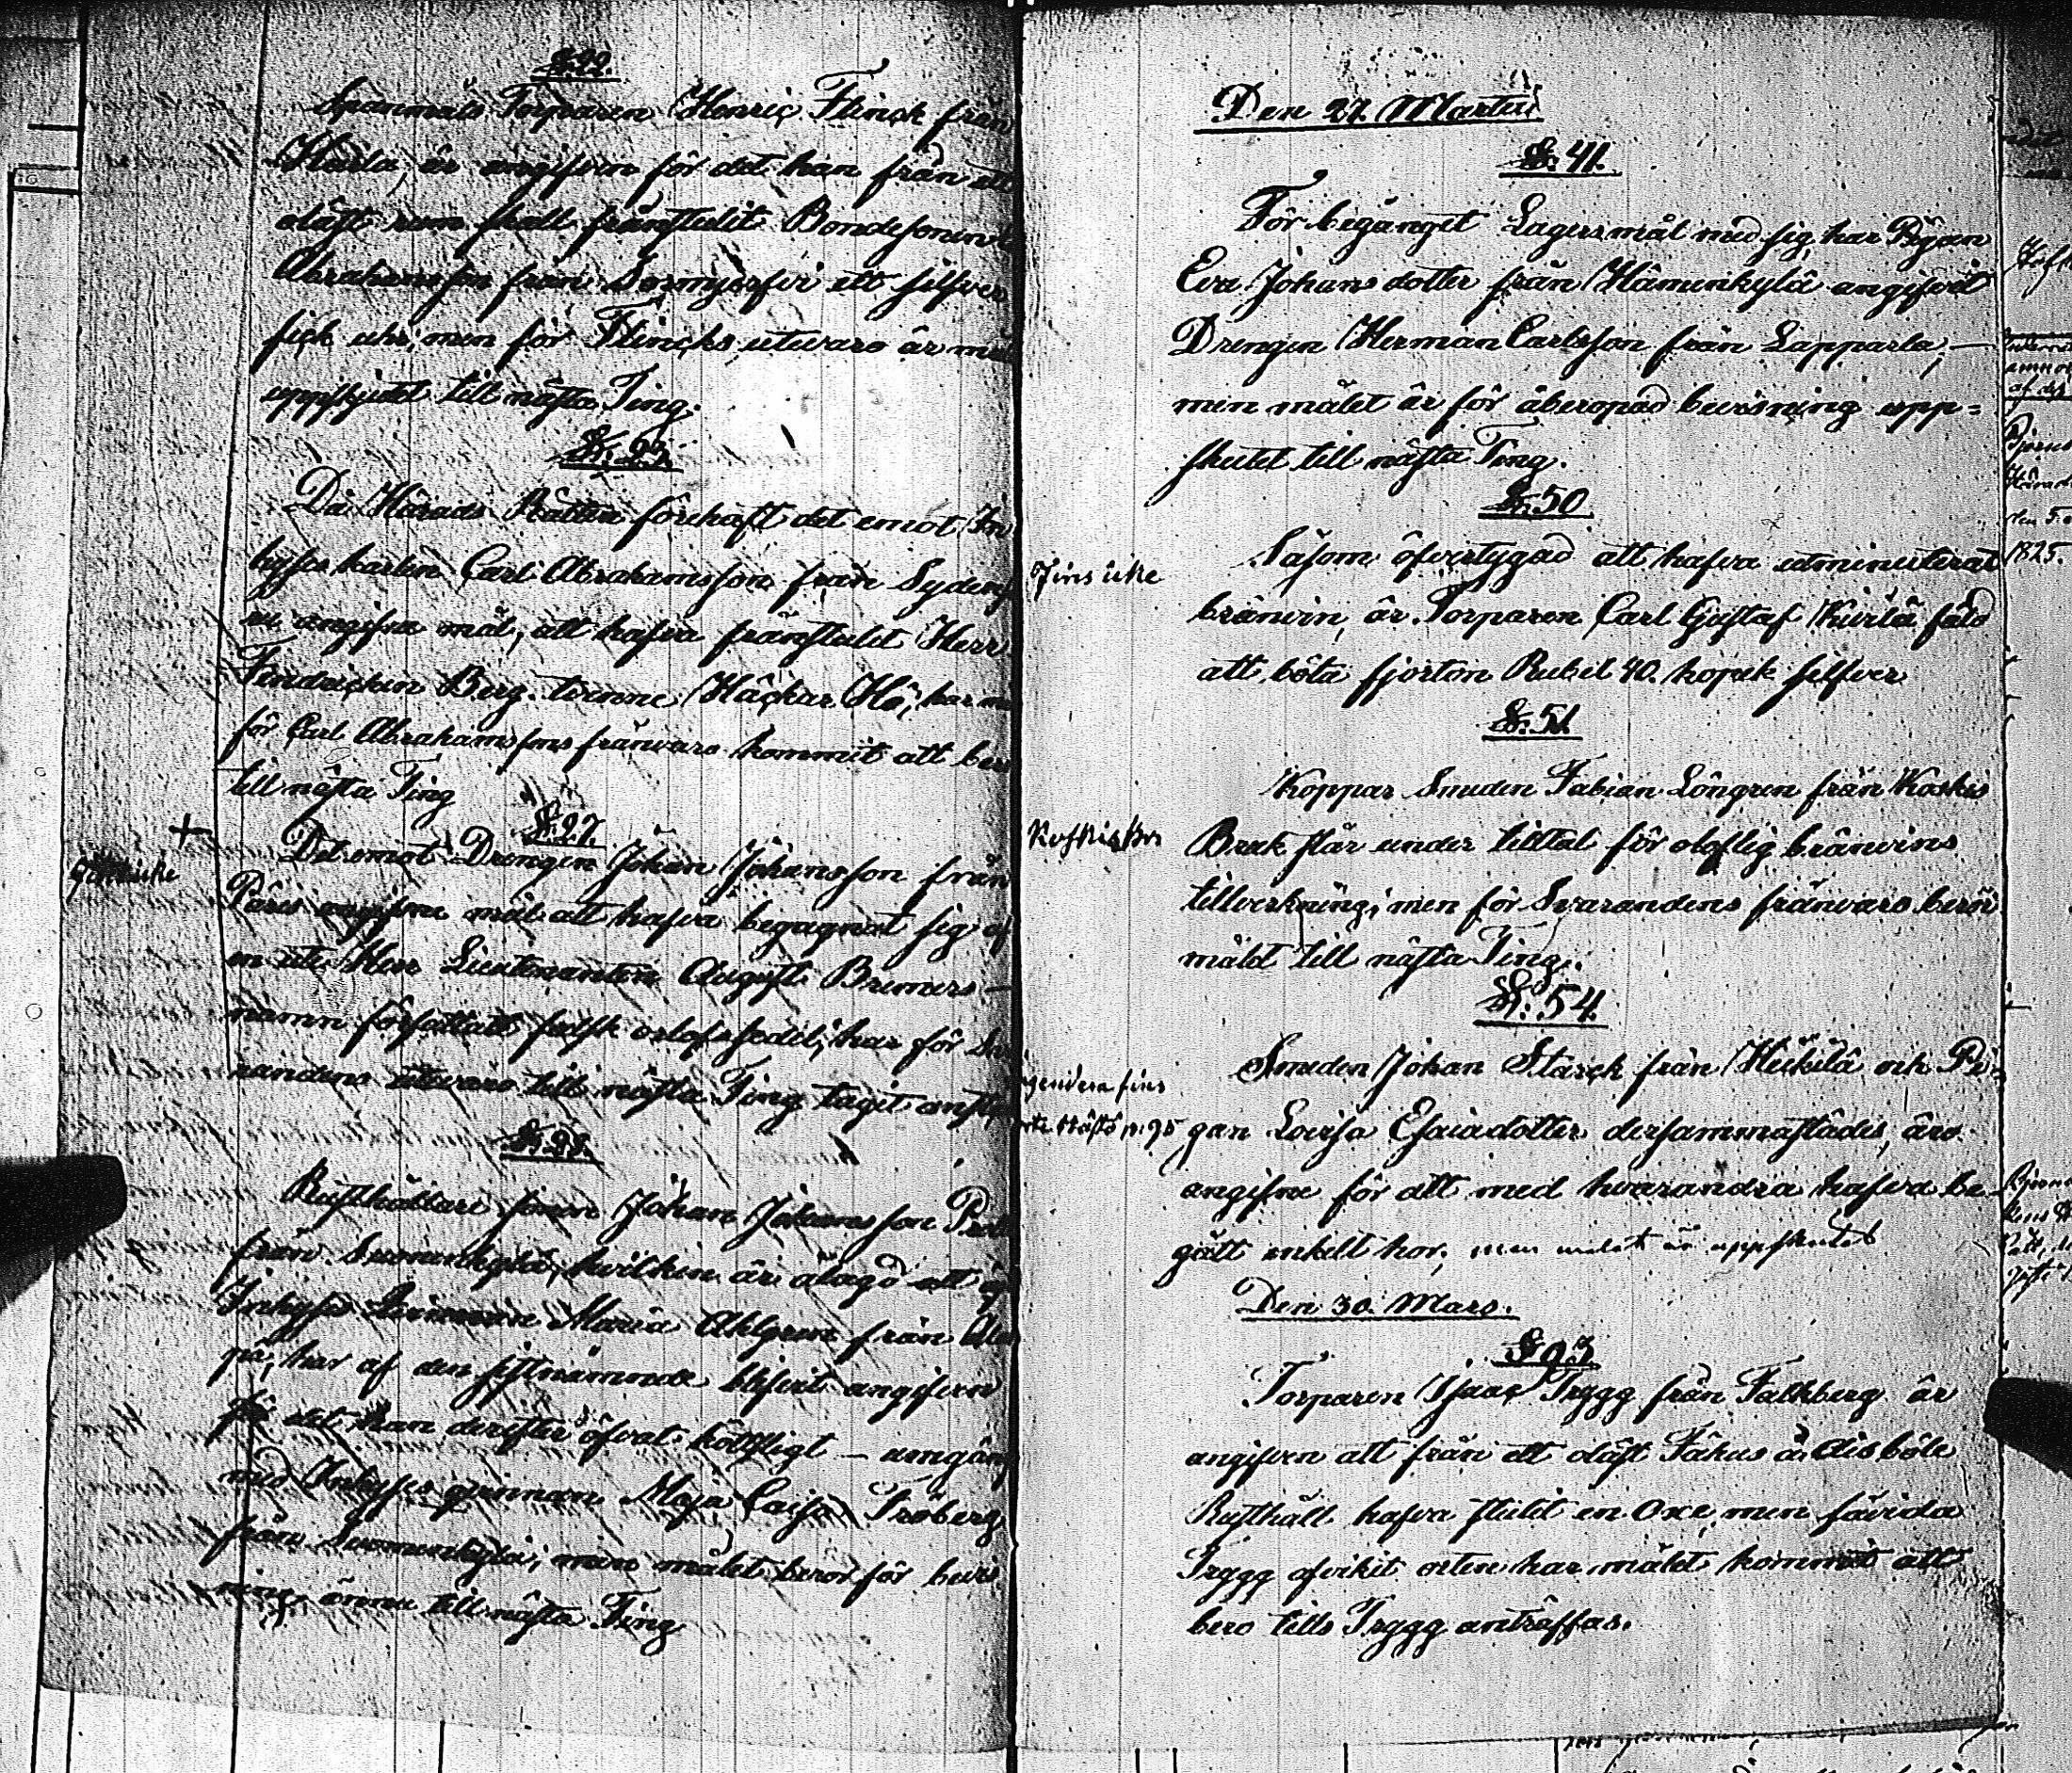 §. 22.
Spanmåls Torparen Henric Flinck från
Harla, är angifven för det han från ett
olåst rum skall frånstulit Bondesonen
Abrahamsson från Sormjerfvi ett silfver
fick uhr, men för Flincks utevaro är må
uppskjutet till nästa Ting.
§. 23.
Då Härads Rätten förehaft det emot In
hyses karlen Carl Abrahamsson från Syden
angifna mål, att hafva frånstulit Herr
Fendricken Berg tvenne Häckar Hö, har må
för Carl Abrahamssons frånvaro kommit att ber
till nästa Ting
§. 27.
Det emot Drengen Johan Johansson från
Påris angifne mål att hafva begagnat sig af
en uti Herr Lieutenanten August Bremers
namn författad falsk orlofssedel, har för Sva
randens utevaro till nästa Ting tagit anst
§. 29.
Rusthållare sonen Johan Johansson
från Suomenkylä, hvilken är ålagd att
Inhyses Maria Ahlgren från
på, har af den sistnämnde blifvit angifven
för det han derefter öfvat köttsligt umgäng
med Inhyses qvinnan Maja Caisa Fröberg
från Suomenkylä, men målet beror för bevis
ning ännu till nästa Ting
Den 27. Martii
§. 41.
För begånget Lägersmål med sig, har Pigan
Eva Johansdotter från Hämenkylä angifvit
Drengen Herman Carlsson från Lapparla,
men målet är för åberopad bevisning upp=
skutet till nästa Ting.
§. 50
Fins icke
Såsom öfvertygad att hafva utminuterat
bränvin, är Torparen Carl Gustaf Kivilä fäld
att böta fjorton Rubel 40. kopek silfver
§. 51.
Koppar Smeden Fabian Löngren från Koskis
Bruk står under tilltal för oloflig bränvins
tillverkning, men för Svarandens frånvaro beror
målet till nästa Ting.
§. 54.
Smeden Johan Starck från Heikilä och Pi-
gan Lovisa Esaiadotter dersammastädes, äro
angifne för att med hvarandra hafva be-
gått enkelt hor, men målet är uppskutet
Den 30. Mars.
§ 93
Torparen Isaac Trygg från Falkberg är
angifven att från ett olåst Fähus å Disböle
Rusthåll hafva stulit en Oxe, men såvida
Trygg afvikit orten har målet kommit att
bero tills Trygg anträffas.
1825.